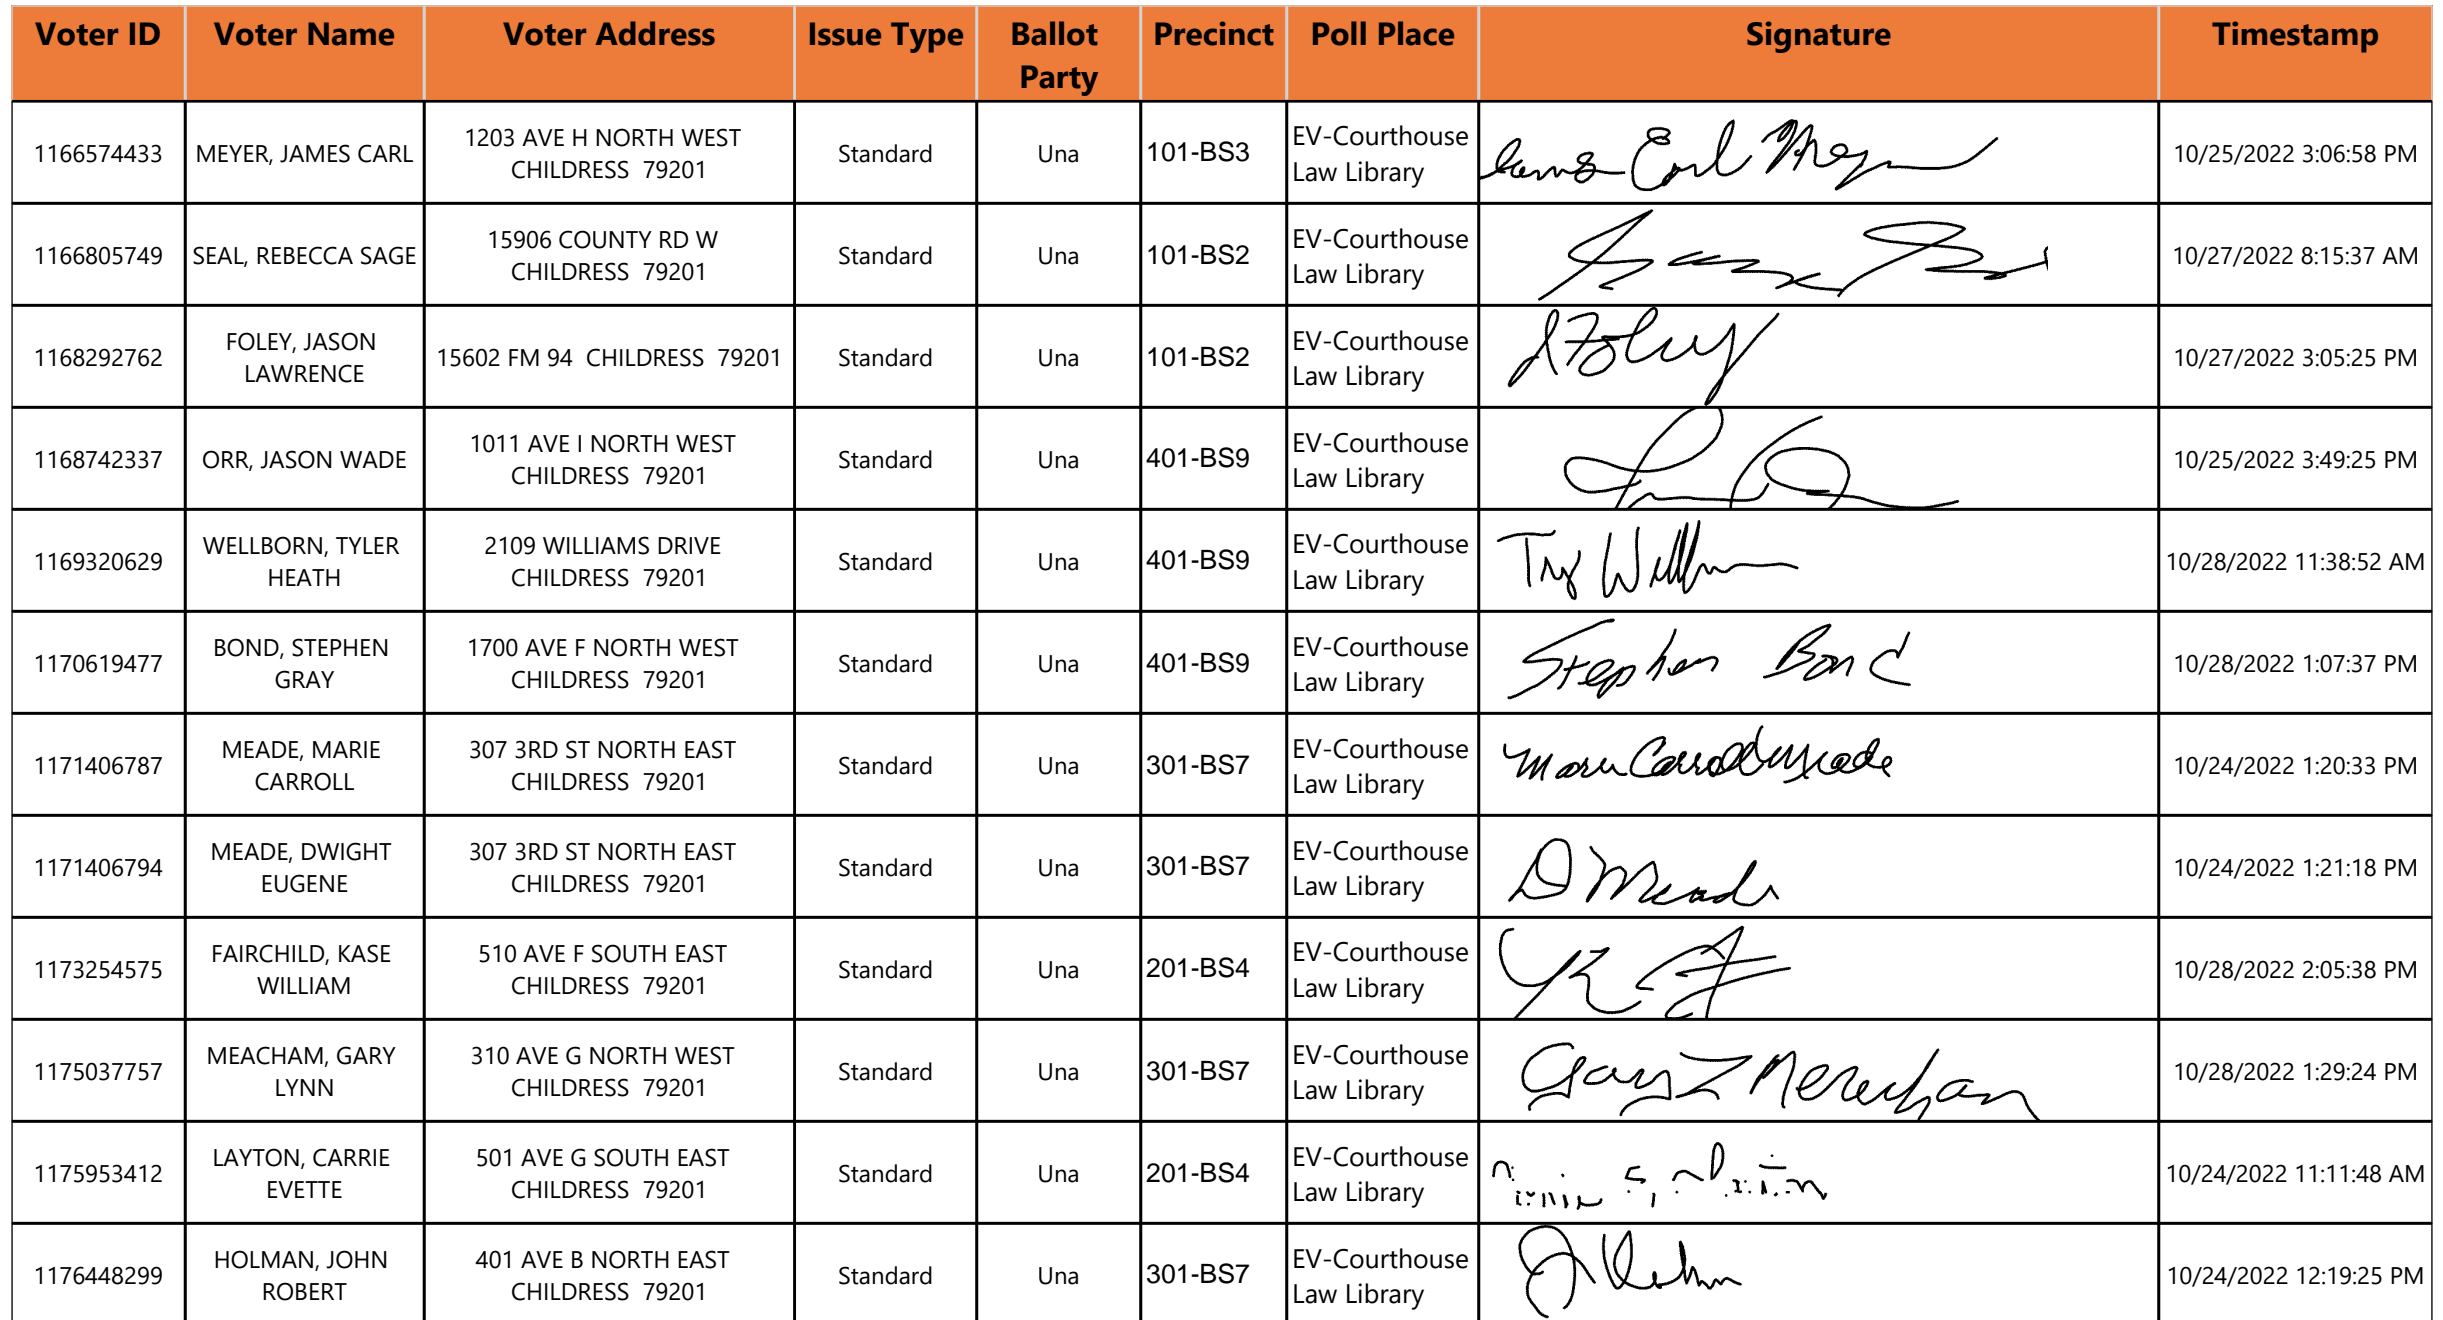 Voter ID Voter Name Voter Address Issue Type Ballot Party Precinct Poll Place Signature Timestamp
1166574433 MEYER, JAMES CARL 1203 AVE H NORTH WEST CHILDRESS 79201 Standard Una 101-BS3 EV-Courthouse Law Library 10/25/2022 3:06:58 PM
1166805749 SEAL, REBECCA SAGE 15906 COUNTY RD W CHILDRESS 79201 Standard Una 101-BS2 EV-Courthouse Law Library 10/27/2022 8:15:37 AM
1168292762 FOLEY, JASON LAWRENCE 15602 FM 94 CHILDRESS 79201 Standard Una 101-BS2 EV-Courthouse Law Library J Foley 10/27/2022 3:05:25 PM
1168742337 ORR, JASON WADE 1011 AVE I NORTH WEST CHILDRESS 79201 Standard Una 401-BS9 EV-Courthouse Law Library 10/25/2022 3:49:25 PM
1169320629 WELLBORN, TYLER HEATH 2109 WILLIAMS DRIVE CHILDRESS 79201 Standard Una 401-BS9 EV-Courthouse Law Library 10/28/2022 11:38:52 AM
1170619477 BOND, STEPHEN GRAY 1700 AVE F NORTH WEST CHILDRESS 79201 Standard Una 401-BS9 EV-Courthouse Law Library Stephen Bond 10/28/2022 1:07:37 PM
1171406787 MEADE, MARIE CARROLL 307 3RD ST NORTH EAST CHILDRESS 79201 Standard Una 301-BS7 EV-Courthouse Law Library Marie Carroll Meade 10/24/2022 1:20:33 PM
1171406794 MEADE, DWIGHT EUGENE 307 3RD ST NORTH EAST CHILDRESS 79201 Standard Una 301-BS7 EV-Courthouse Law Library D Meade 10/24/2022 1:21:18 PM
1173254575 FAIRCHILD, KASE WILLIAM 510 AVE F SOUTH EAST CHILDRESS 79201 Standard Una 201-BS4 EV-Courthouse Law Library 10/28/2022 2:05:38 PM
1175037757 MEACHAM, GARY LYNN 310 AVE G NORTH WEST CHILDRESS 79201 Standard Una 301-BS7 EV-Courthouse Law Library Gary L Meacham 10/28/2022 1:29:24 PM
1175953412 LAYTON, CARRIE EVETTE 501 AVE G SOUTH EAST CHILDRESS 79201 Standard Una 201-BS4 EV-Courthouse Law Library 10/24/2022 11:11:48 AM
1176448299 HOLMAN, JOHN ROBERT 401 AVE B NORTH EAST CHILDRESS 79201 Standard Una 301-BS7 EV-Courthouse Law Library 10/24/2022 12:19:25 PM